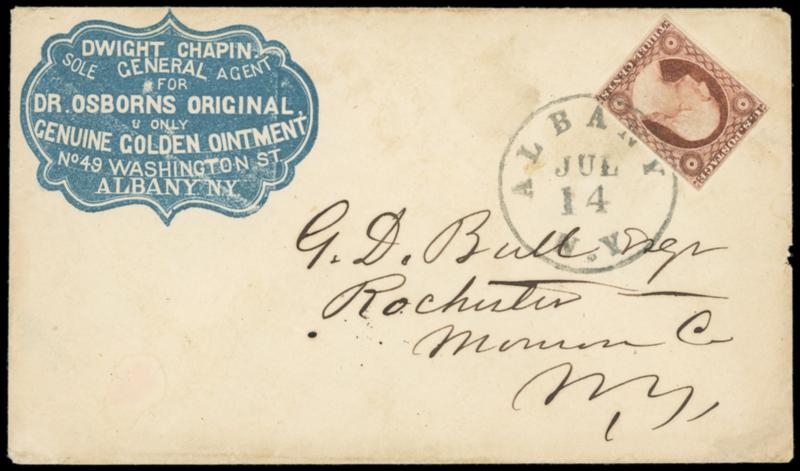 DWIGHT CHAPIN
SOLE GENERAL AGENT
FOR
DR. OSBORNS ORIGINAL
& ONLY
GENUINE GOLDEN OINTMENT
No 49 WASHINGTON ST
ALBANY NY
U.S. POSTAGE
THREE CENTS
ALBANY
JUL
14
N.Y
G. D. Bull Esqr
Rochester
Monroe Co
N.Y.